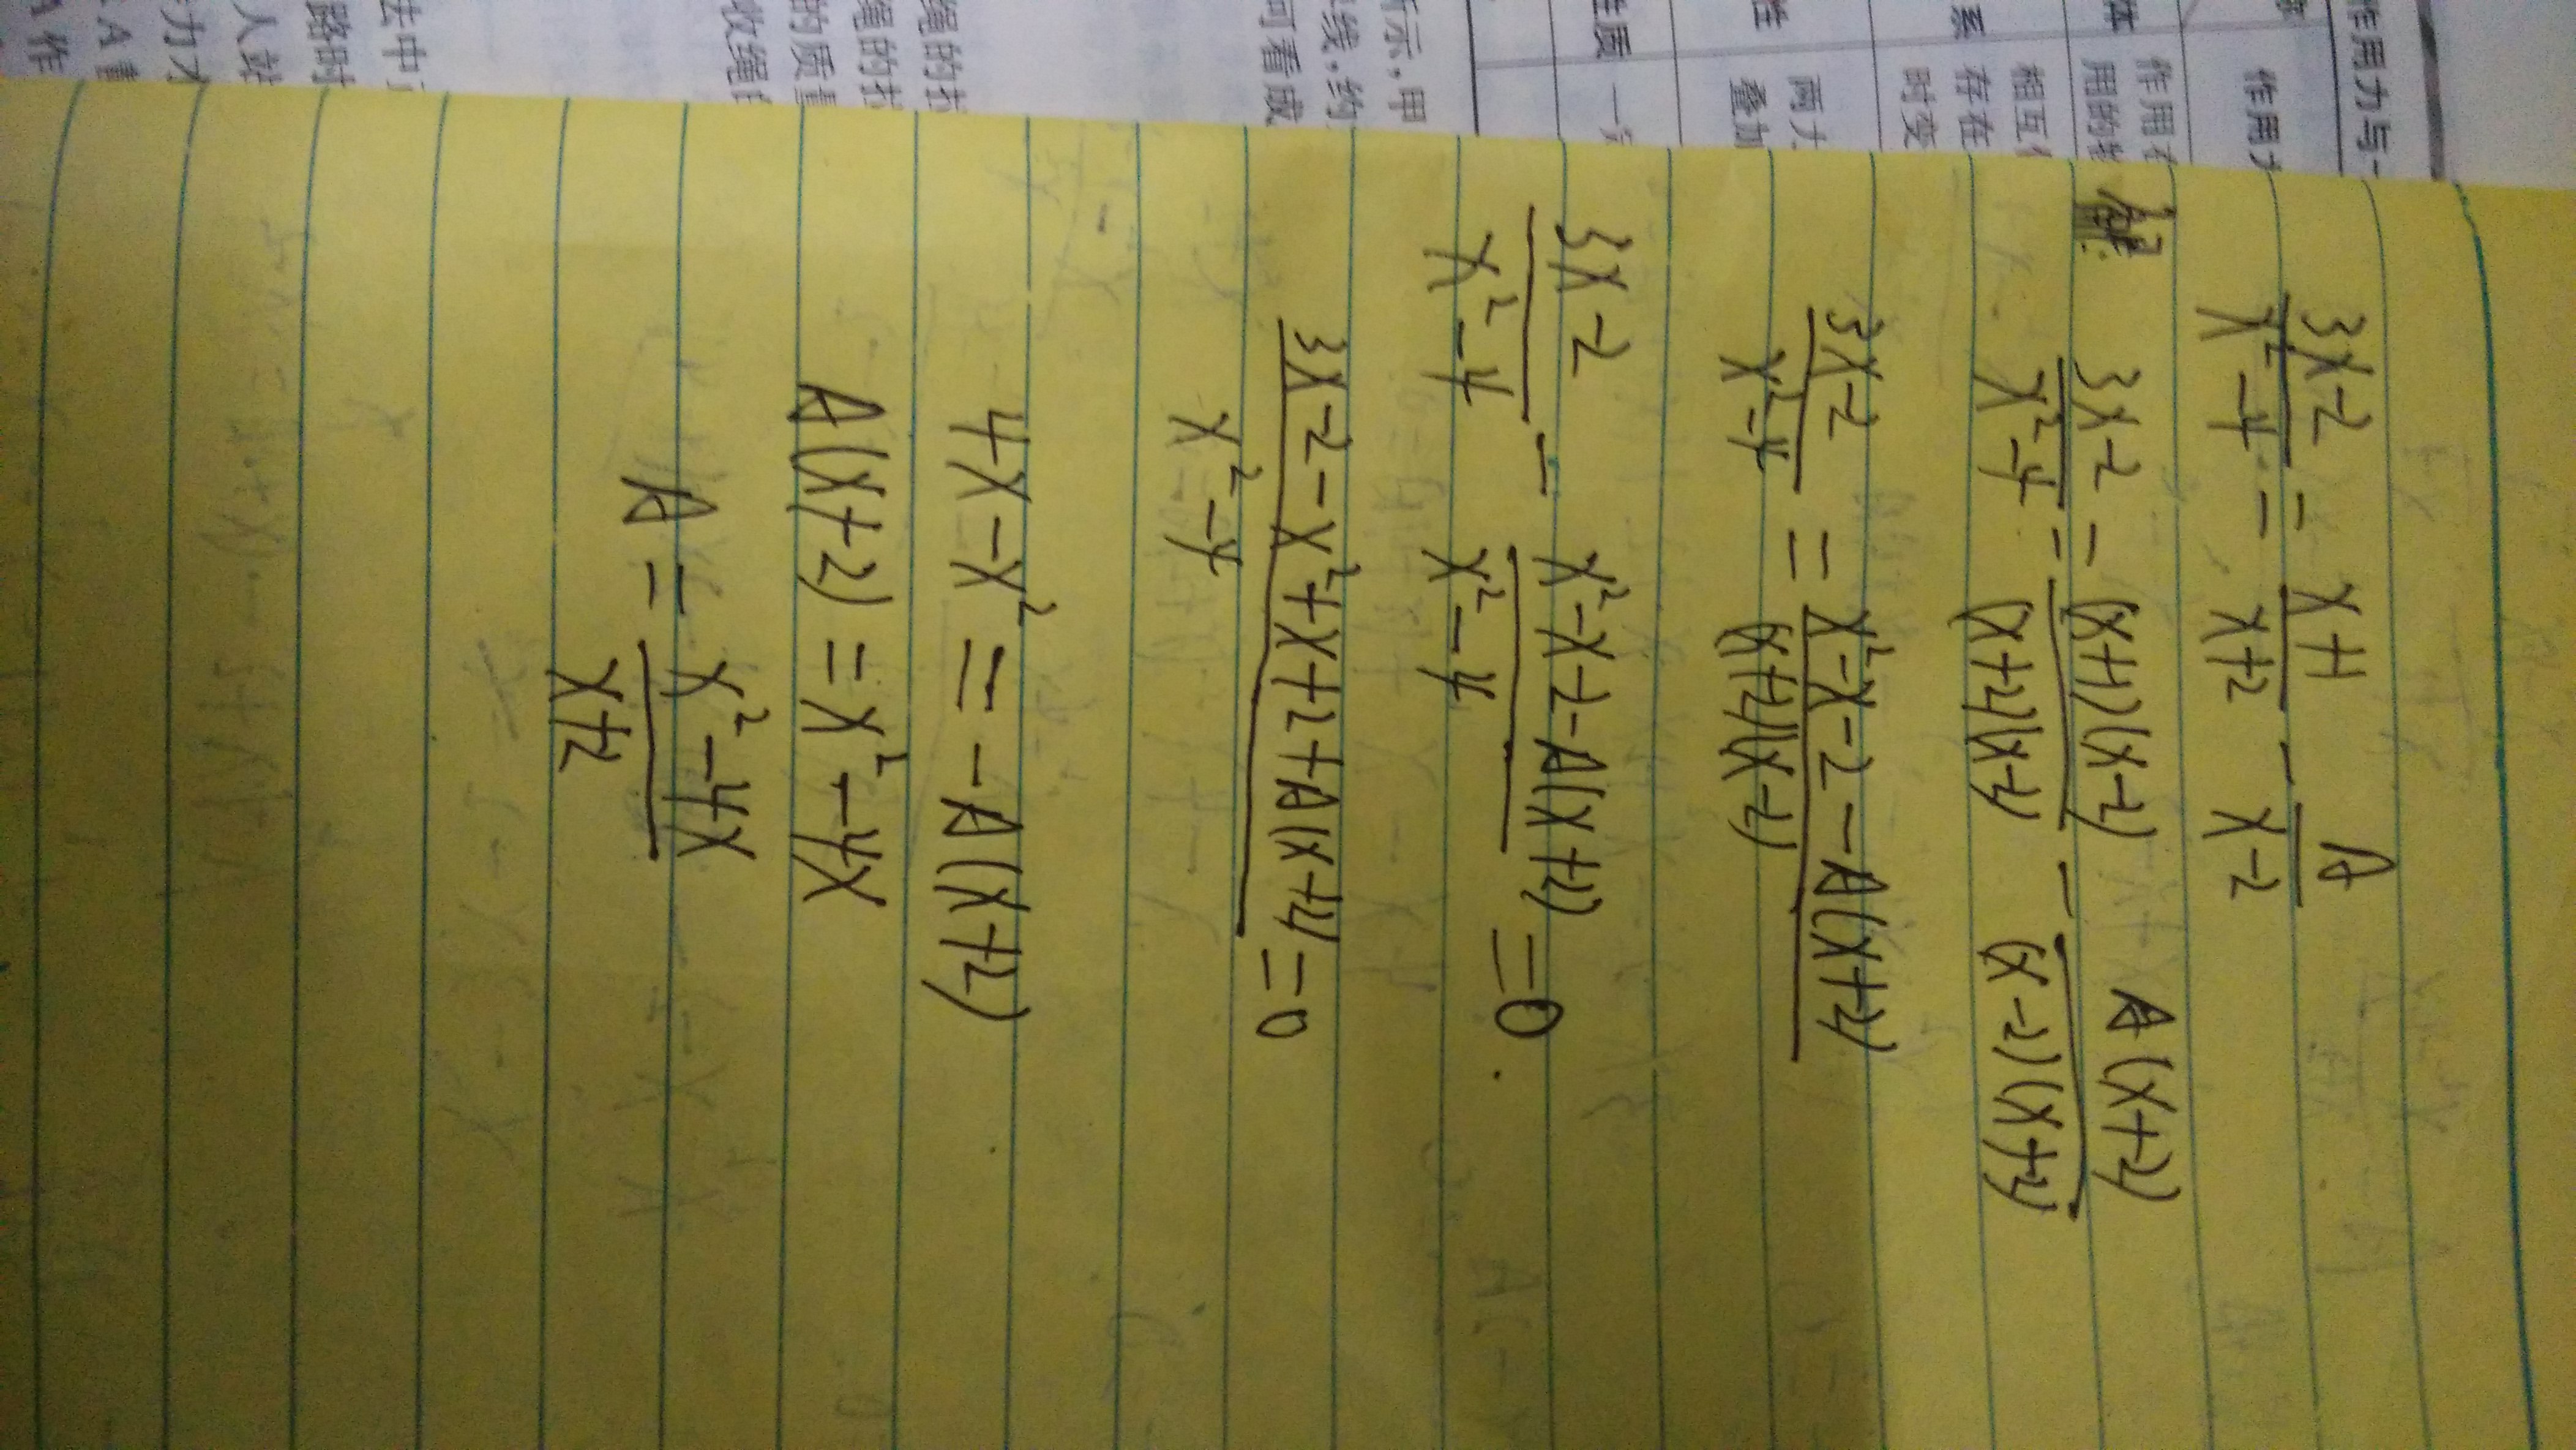 作用力与
作用力
体
作用在
用的物
系
相互依
存在
时变
性
两力
叠加
性质
一定
所示,甲
线,约
可看成
绳的拉
绳的拉
的质量
收绳
去中
路时
人站
力
A
A作
(3x-2)/(x²-4) = (x+1)/(x+2) - A/(x-2)
解: (3x-2)/(x²-4) = (x+1)(x-2)/(x+2)(x-2) - A(x+2)/(x-2)(x+2)
(3x-2)/(x²-4) = (x²-x-2-A(x+2))/(x+2)(x-2)
(3x-2)/(x²-4) - (x²-x-2-A(x+2))/(x²-4) =0.
(3x-2-x²+x+2+A(x+2))/(x²-4) =0
4x-x² = -A(x+2)
A(x+2) = x²-4x
A = (x²-4x)/(x+2)